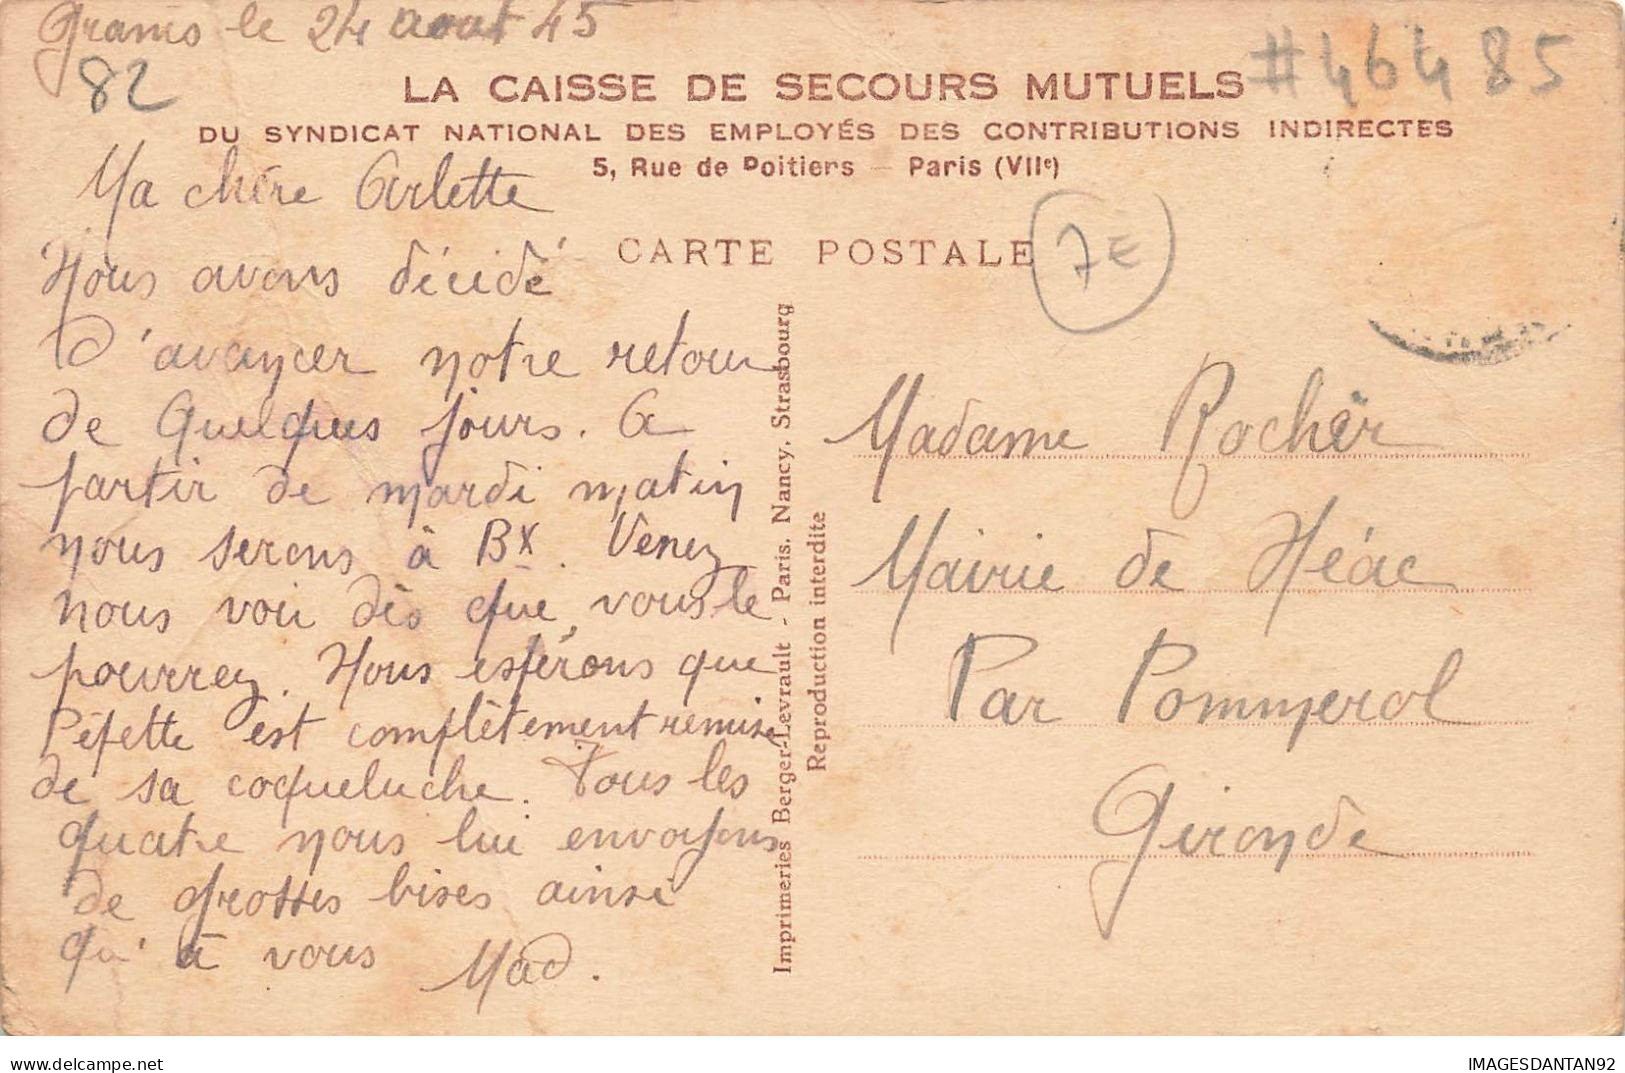 le 24 aout 45
82
#46485
LA CAISSE DE SECOURS MUTUELS
DU SYNDICAT NATIONAL DES EMPLOYÉS DES CONTRIBUTIONS INDIRECTES
5, Rue de Poitiers — Paris (VIIe)
CARTE POSTALE
7€
Ma chère Arlette
Nous avons décidé
d'avancer notre retour
de quelques jours. A
partir de mardi matin
nous serons à Bx. Venez
nous voir dès que vous le
pourrez. Nous espérons que
Pépette est complètement remise
de sa coqueluche. Tous les
quatre nous lui envoyons
de grosses bises ainsi
qu'à vous Mad.
Imprimeries Berger-Levrault - Paris, Nancy, Strasbourg
Reproduction interdite
Madame Rocher
Mairie de Néac
Par Pommerol
Gironde
IMAGESDANTAN92